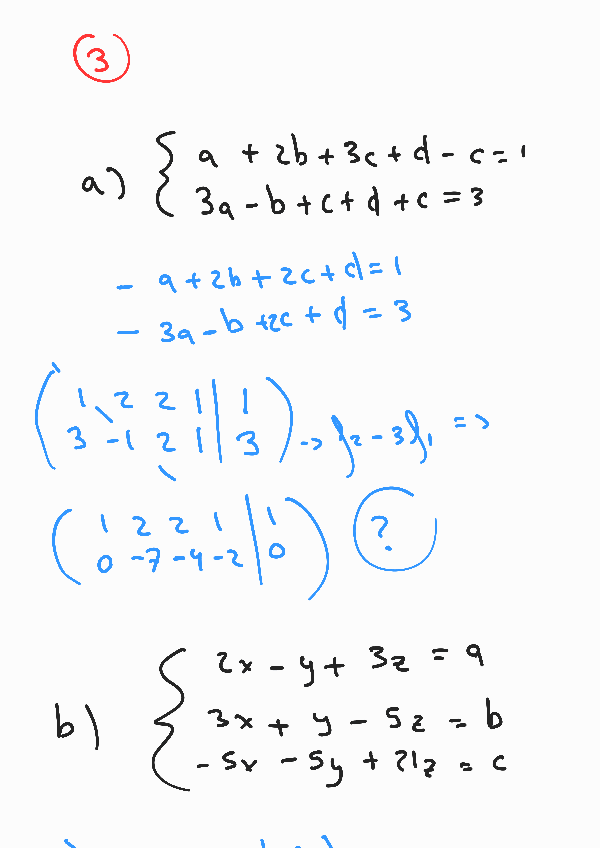 3
a) { a + 2b + 3c + d - c = 1
3a - b + c + d + c = 3
- a + 2b + 2c + d = 1
- 3a - b + 2c + d = 3
( 1 2 2 1 | 1
3 -1 2 1 | 3 ) -> f2 - 3f1 =>
( 1 2 2 1 | 1
0 -7 -4 -2 | 0 ) ?
b) { 2x - y + 3z = a
3x + y - 5z = b
-5x - 5y + 21z = c